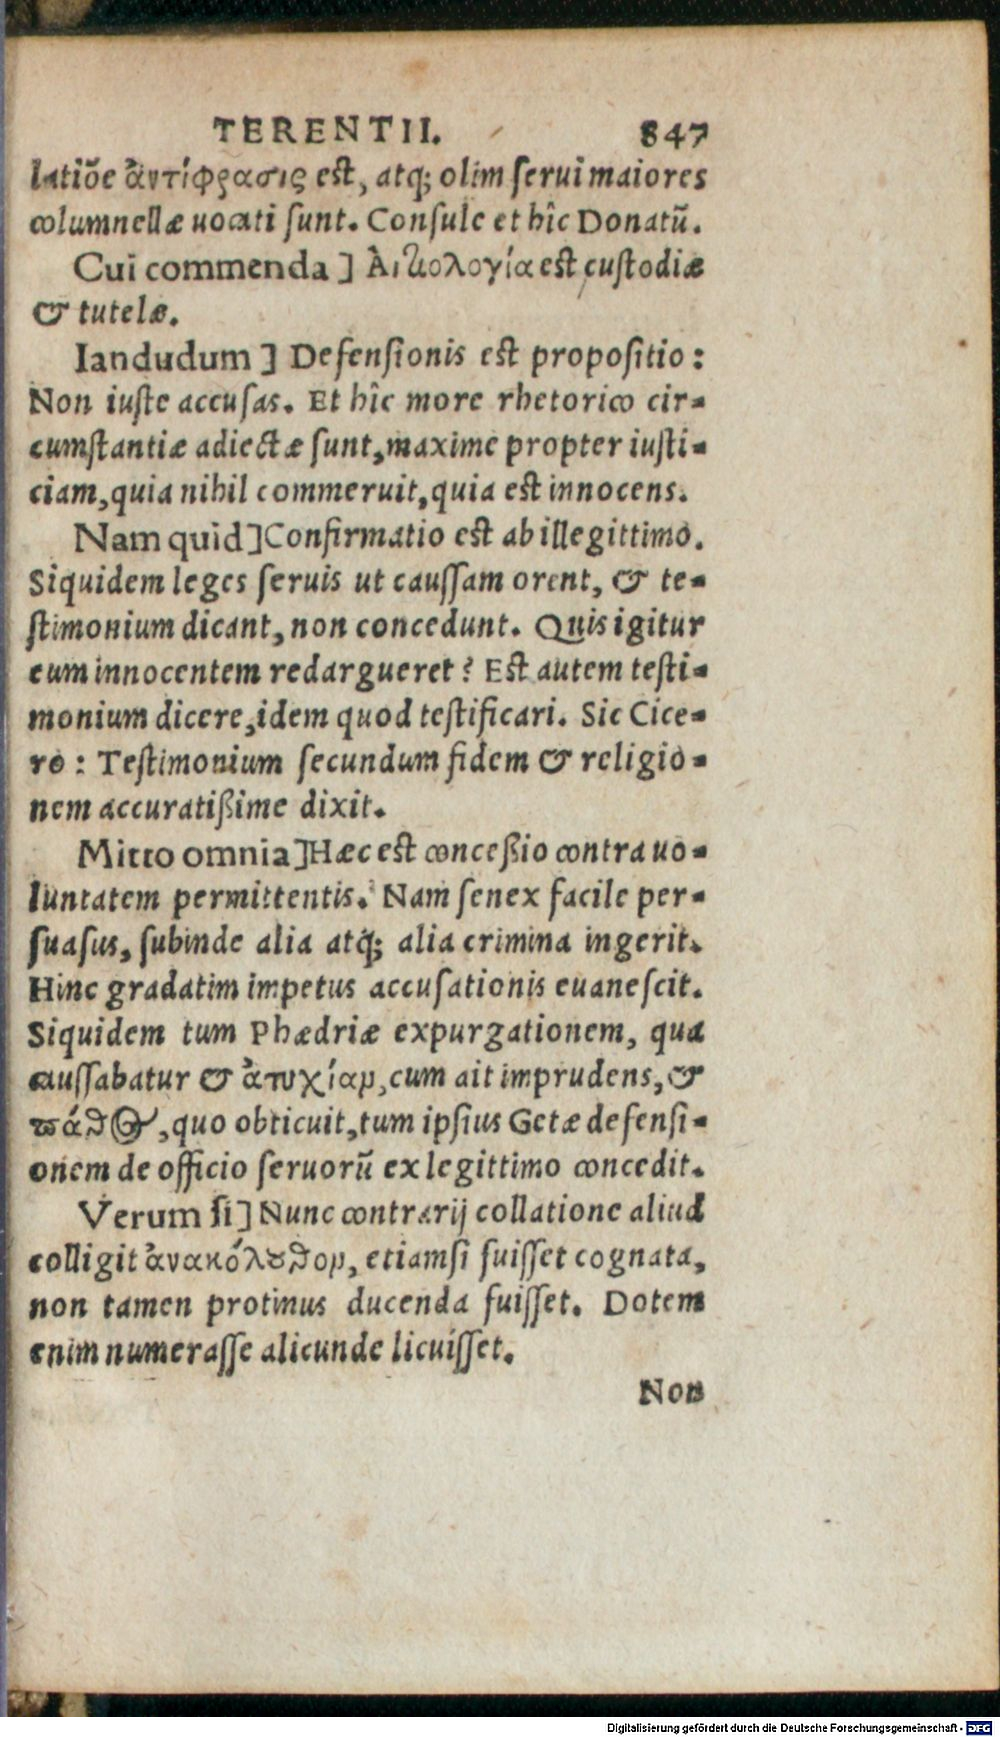 TERENTII. 847
latiōe ἀντίφρασις est, atq; olim serui maiores
columnellæ uocati sunt. Consule et hîc Donatū.
Cui commenda] Αἰτιολογία est custodiæ
& tutelæ.
Iandudum] Defensionis est propositio:
Non iuste accusas. Et hîc more rhetorico cir-
cumstantiæ adiectæ sunt, maxime propter iusti-
ciam, quia nihil commeruit, quia est innocens.
Nam quid] Confirmatio est ab illegittimo.
Siquidem leges seruis ut caussam orent, & te-
stimonium dicant, non concedunt. Quis igitur
eum innocentem redargueret? Est autem testi-
monium dicere, idem quod testificari. Sic Cice-
ro: Testimonium secundum fidem & religio-
nem accuratißime dixit.
Mitto omnia] Hæc est conceßio contra uo-
luntatem permittentis. Nam senex facile per-
suasus, subinde alia atq; alia crimina ingerit.
Hinc gradatim impetus accusationis euanescit.
Siquidem tum Phædriæ expurgationem, qua
caussabatur & ἀτυχίαν, cum ait imprudens, &
πάθος, quo obticuit, tum ipsius Getæ defensi-
onem de officio seruorū ex legittimo concedit.
Verum si] Nunc contrarij collatione aliud
colligit ἀνακόλουθον, etiamsi fuisset cognata,
non tamen protinus ducenda fuisset. Dotem
enim numerasse alicunde licuisset.
Non
Digitalisierung gefördert durch die Deutsche Forschungsgemeinschaft - DFG